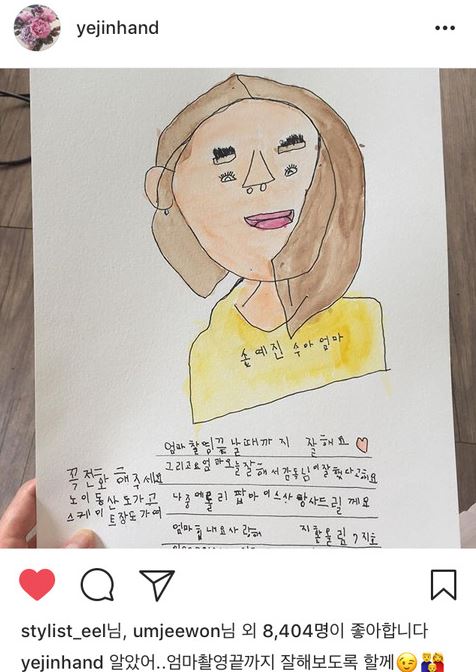 yejinhand
손예진 수아 엄마
엄마 촬영 끝날때까지 잘해요
꼭 전화 해주세요
그리고요 엄마 오늘 잘해서 감독님이 잘했다고해요
노이동산도가고
스케이트장도가여
엄마 힘내요 사랑해
stylist_eel님, umjeewon님 외 8,404명이 좋아합니다
yejinhand 알았어..엄마촬영끝까지 잘해보도록 할께😉👨‍👩‍👦